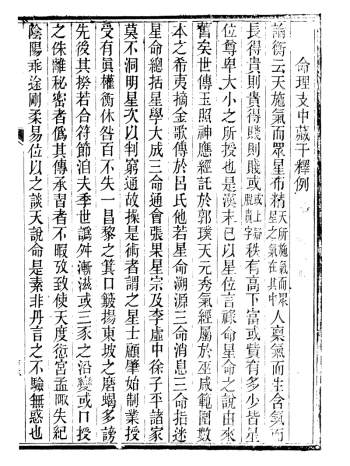 命理支中藏干釋例
論衡云天施氣而眾星布精天所施氣而眾星之氣在其中人稟氣而生含氣而
長得貴則貴得賤則賤或上疑脫貴字秩有高下富或貲有多少皆星
位尊卑大小之所授也是漢末已以星位言祿命星命之說由來
舊矣世傳玉照神應經託於郭璞天元秀氣經屬於巫咸範圍數
本之希夷摘金歌傳於呂氏他若星命溯源三命消息三命指迷
星命總括星學大成三命通會張果星宗及李虛中徐子平諸家
莫不洞明星次以判窮通故操是術者謂之星士顧肇始制業授
受有真權衡休咎百不失一昌黎之箕口簸揚東坡之磨蝎多謗
先後其揆若合符節洎夫季世譌舛漸滋或三豕之沿變或口授
之侏離秘密者僞其傳承習者不暇攷致使天度愆宮孟陬失紀
陰陽乖迕剛柔易位以之談天說命是素非丹言之不驗無惑也